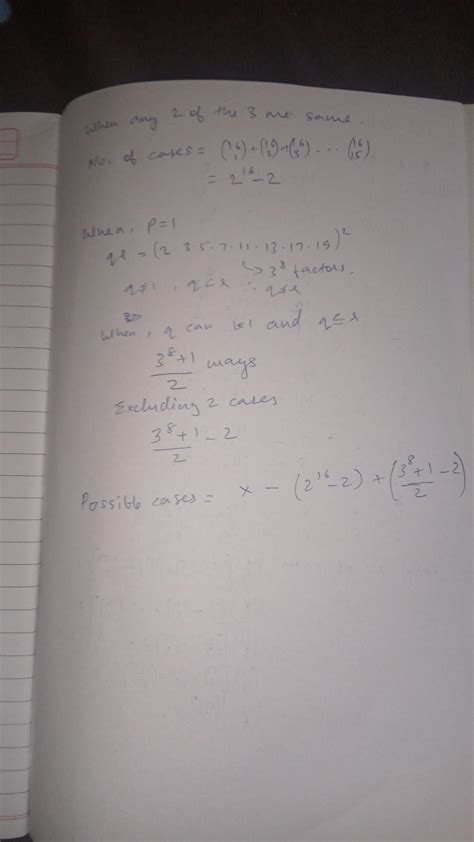 When any 2 of the 3 are same.
No. of cases = (16 1) + (16 2) + (16 3) ... (16 15)
= 2^16 - 2
When, P=1
qr = (2·3·5·7·11·13·17·19)^2
↳ 3^8 factors.
q≠1, q<r ∴ q≠r
When, q can be 1 and q≤r
(3^8+1)/2 ways
Excluding 2 cases
(3^8+1)/2 - 2
Possible cases = x - (2^16-2) + ((3^8+1)/2 - 2)